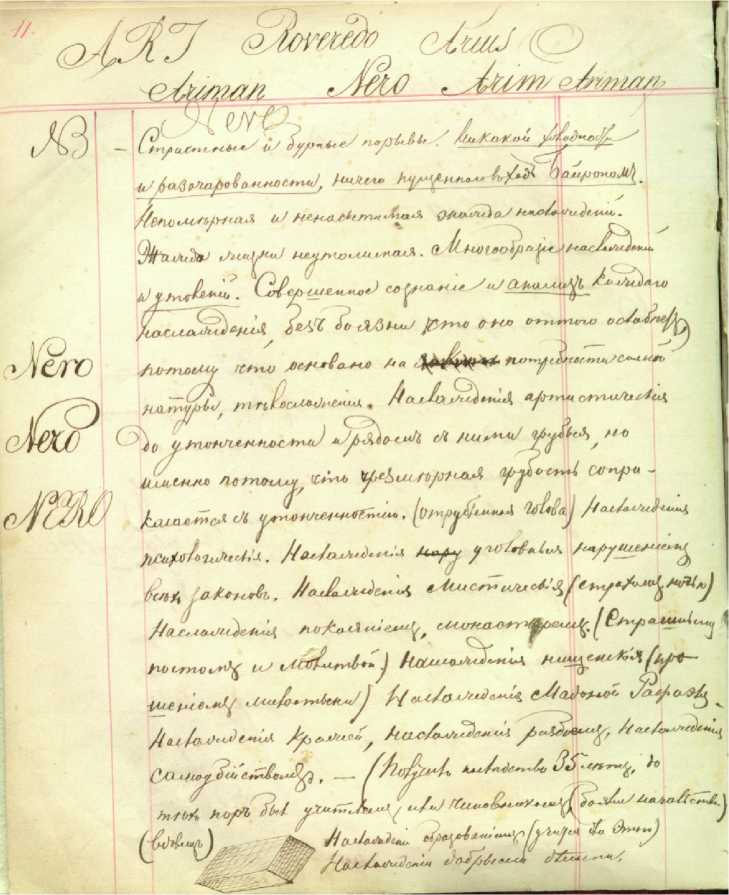 11.
ART Roveredo Arius
Ariman Nero Arim Ariman
Nero
NB — Страстные и бурные порывы. Никакой холодности
и разочарованности, ничего пущеннаго въ ходъ Байрономъ.
Непомѣрная и ненасытимая жажда наслажденій.
Жажда жизни неутолимая. Многообразіе наслажденій
и утоленій. Совершенное сознаніе и анализъ каждаго
наслажденія, безъ боязни что оно оттого ослабнетъ,
Nero потому что основано на потребности самой
натуры, тѣлосложенія. Наслажденія артистическія
Nero до утонченности и рядомъ съ ними грубыя, но
именно потому, что чрезмѣрная грубость сопри-
NERO касается съ утонченностью. (отрубленная голова) Наслажденія
психологическія. Наслажденія уголовныя нарушеніемъ
всѣхъ законовъ. Наслажденія мистическія (страхомъ ночью)
Наслажденія покаяніемъ, монастыремъ. (Страшнымъ
постомъ и молитвой) Наслажденія нищенскія (про-
шеніемъ милостыни) Наслажденія Мадоной Рафаэля.
Наслажденія кражей, наслажденія разбоемъ, наслажденія
самоубійствомъ. — (Получилъ наслѣдство 35 лѣтъ, до
тѣхъ поръ былъ учителемъ или чиновникомъ, боялся начальства)
(вдовецъ) Наслажденія образованіемъ (учится для этого)
Наслажденія добрыми дѣлами.